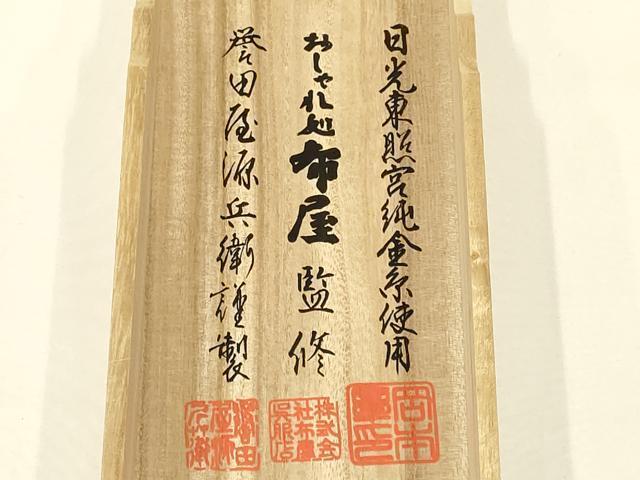 日光東照宮純金糸使用
おしゃれ処布屋監修
誉田屋源兵衛謹製
株式会
社布屋
呉服店